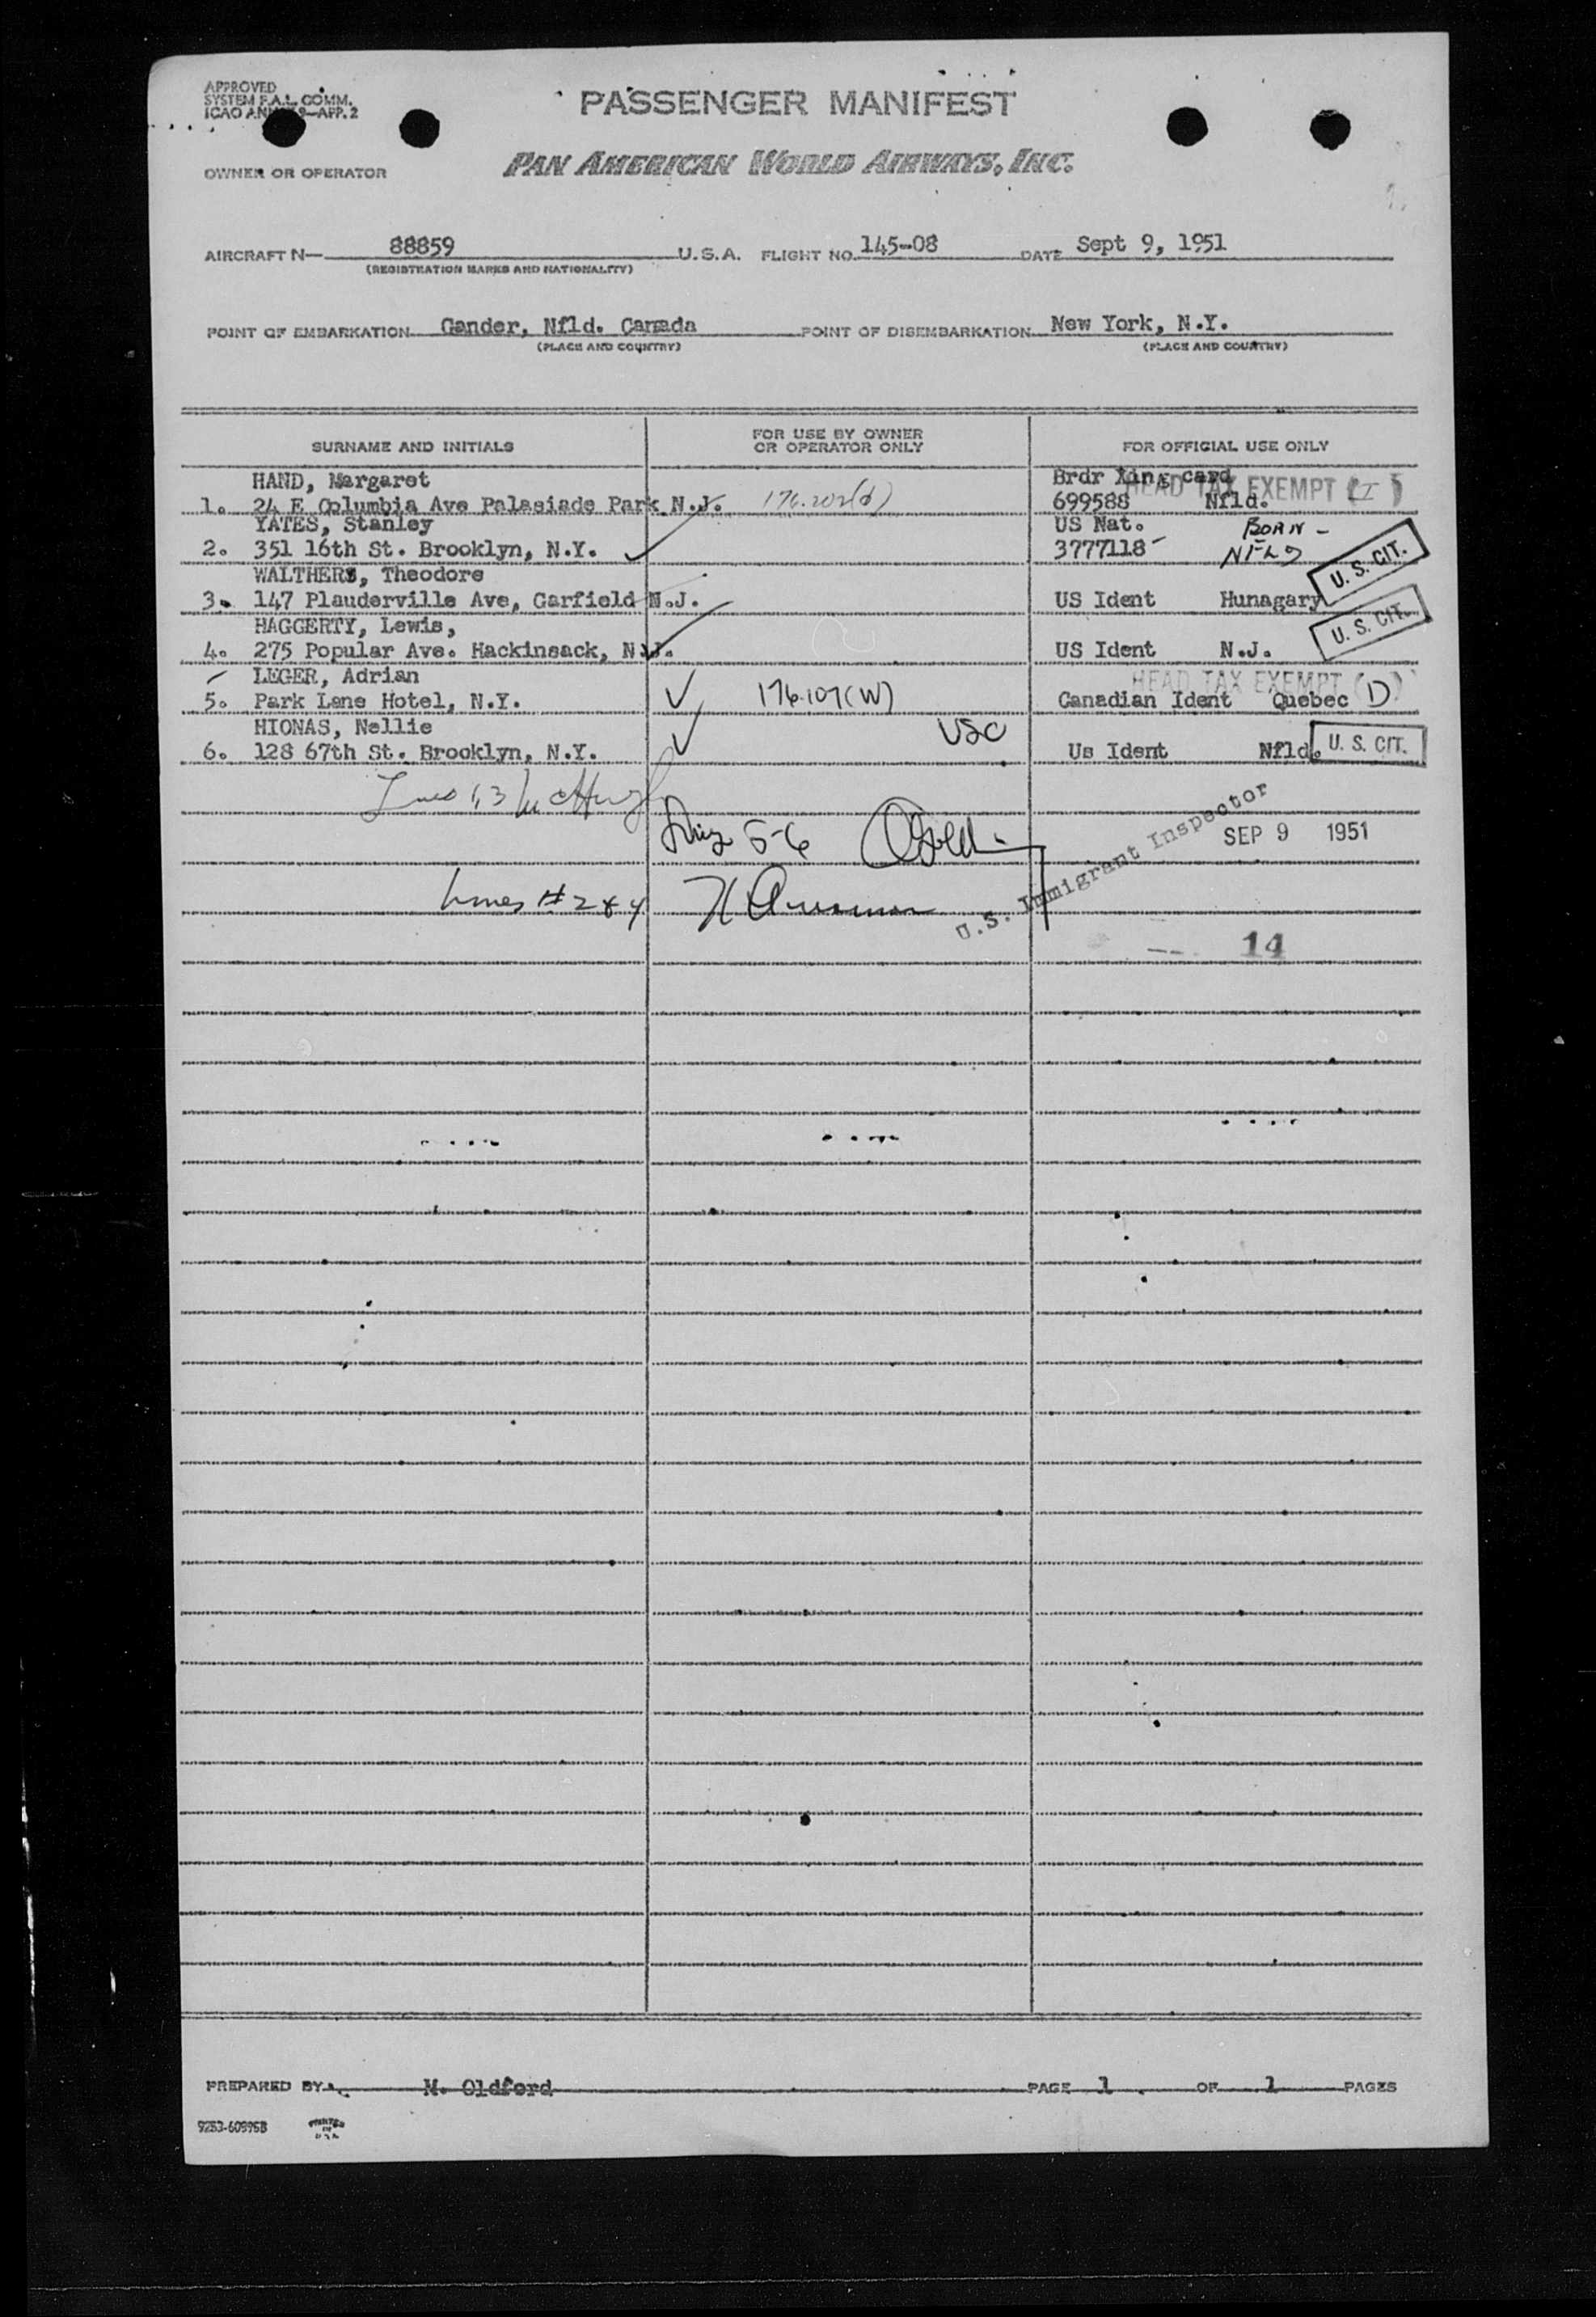 APPROVED
SYSTEM F.A.L. COMM.
ICAO ANNEX 9—APP. 2
PASSENGER MANIFEST
OWNER OR OPERATOR PAN AMERICAN WORLD AIRWAYS, INC.
AIRCRAFT N— 88859 U.S.A. FLIGHT NO. 145-08 DATE Sept 9, 1951
(REGISTRATION MARKS AND NATIONALITY)
POINT OF EMBARKATION Gander, Nfld. Canada POINT OF DISEMBARKATION New York, N.Y.
(PLACE AND COUNTRY) (PLACE AND COUNTRY)
SURNAME AND INITIALS FOR USE BY OWNER OR OPERATOR ONLY FOR OFFICIAL USE ONLY
HAND, Margaret Brdr Xing card
1. 24 E Columbia Ave Palasiade Park N.J. 176.202(d) 699588 Nfld. HEAD TAX EXEMPT
YATES, Stanley US Nat. BORN -
2. 351 16th St. Brooklyn, N.Y. 3777118 NFLD
WALTHERS, Theodore U. S. CIT.
3. 147 Plauderville Ave, Garfield N.J. US Ident Hunagary
HAGGERTY, Lewis, U. S. CIT.
4. 275 Popular Ave. Hackinsack, N.J. US Ident N.J.
LEGER, Adrian HEAD TAX EXEMPT (D)
5. Park Lane Hotel, N.Y. 176.107(W) Canadian Ident Quebec
HIONAS, Nellie USC
6. 128 67th St. Brooklyn, N.Y. Us Ident Nfld. U. S. CIT.
Lines 1,3
5-6 SEP 9 1951
Lines # 2 & 4 U.S. Immigrant Inspector
14
PREPARED BY M. Oldford PAGE 1 OF 1 PAGES
9253-60995B PRINTED IN U.S.A.